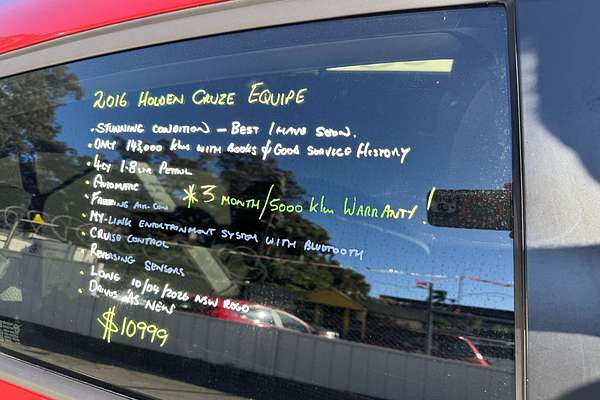 2016 HOLDEN CRUZE EQUIPE
• STUNNING CONDITION - BEST I HAVE SEEN.
• ONLY 143,000 klms WITH BOOKS & GOOD SERVICE HISTORY
• 4CY 1.8 LITRE PETROL
• AUTOMATIC
* 3 MONTH/5000 klm WARRANTY!
• FREEZING AIR CON
• MY-LINK ENTERTAINMENT SYSTEM WITH BLUETOOTH
• CRUISE CONTROL
• REVERSING SENSORS
• LONG 10/04/2026 NSW REGO
• DRIVES AS NEW
$10999